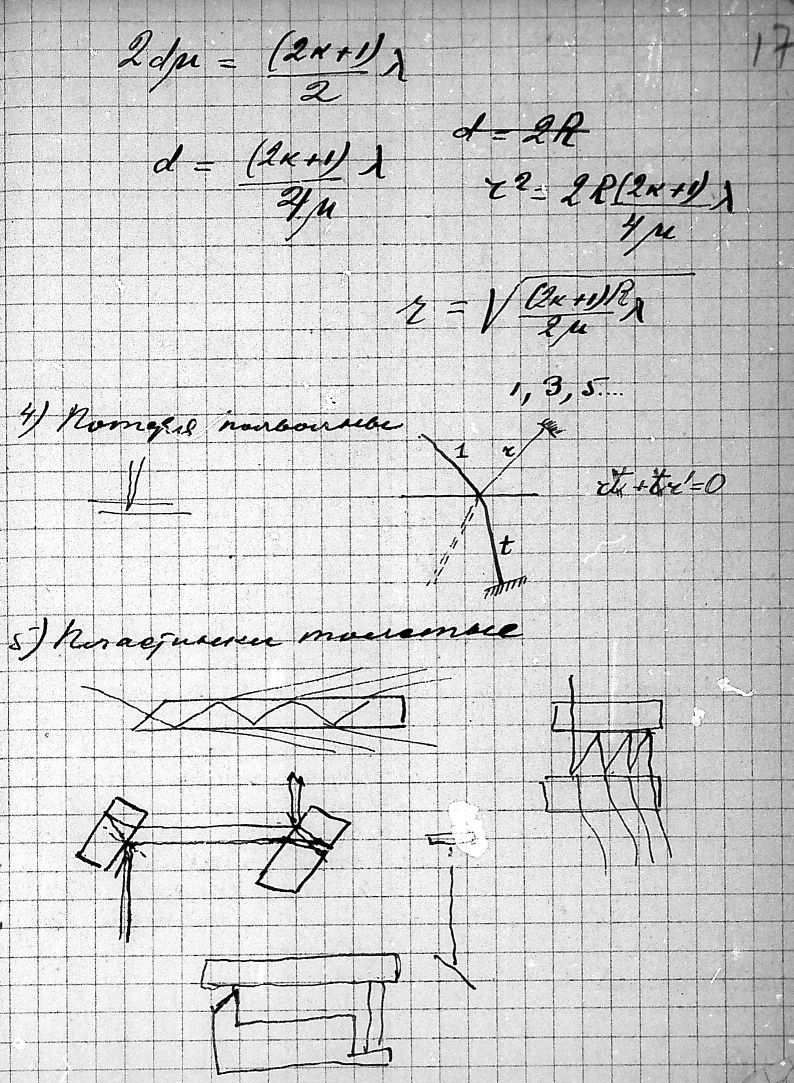 17
2dμ = (2к+1)/2 λ
d = (2к+1)/4μ λ
d = 2R
r² = 2R(2к+1)/4μ λ
r = √((2к+1)R/2μ λ)
1, 3, 5....
4) Потеря полволны
1 r
t
5) Пластинки толстые